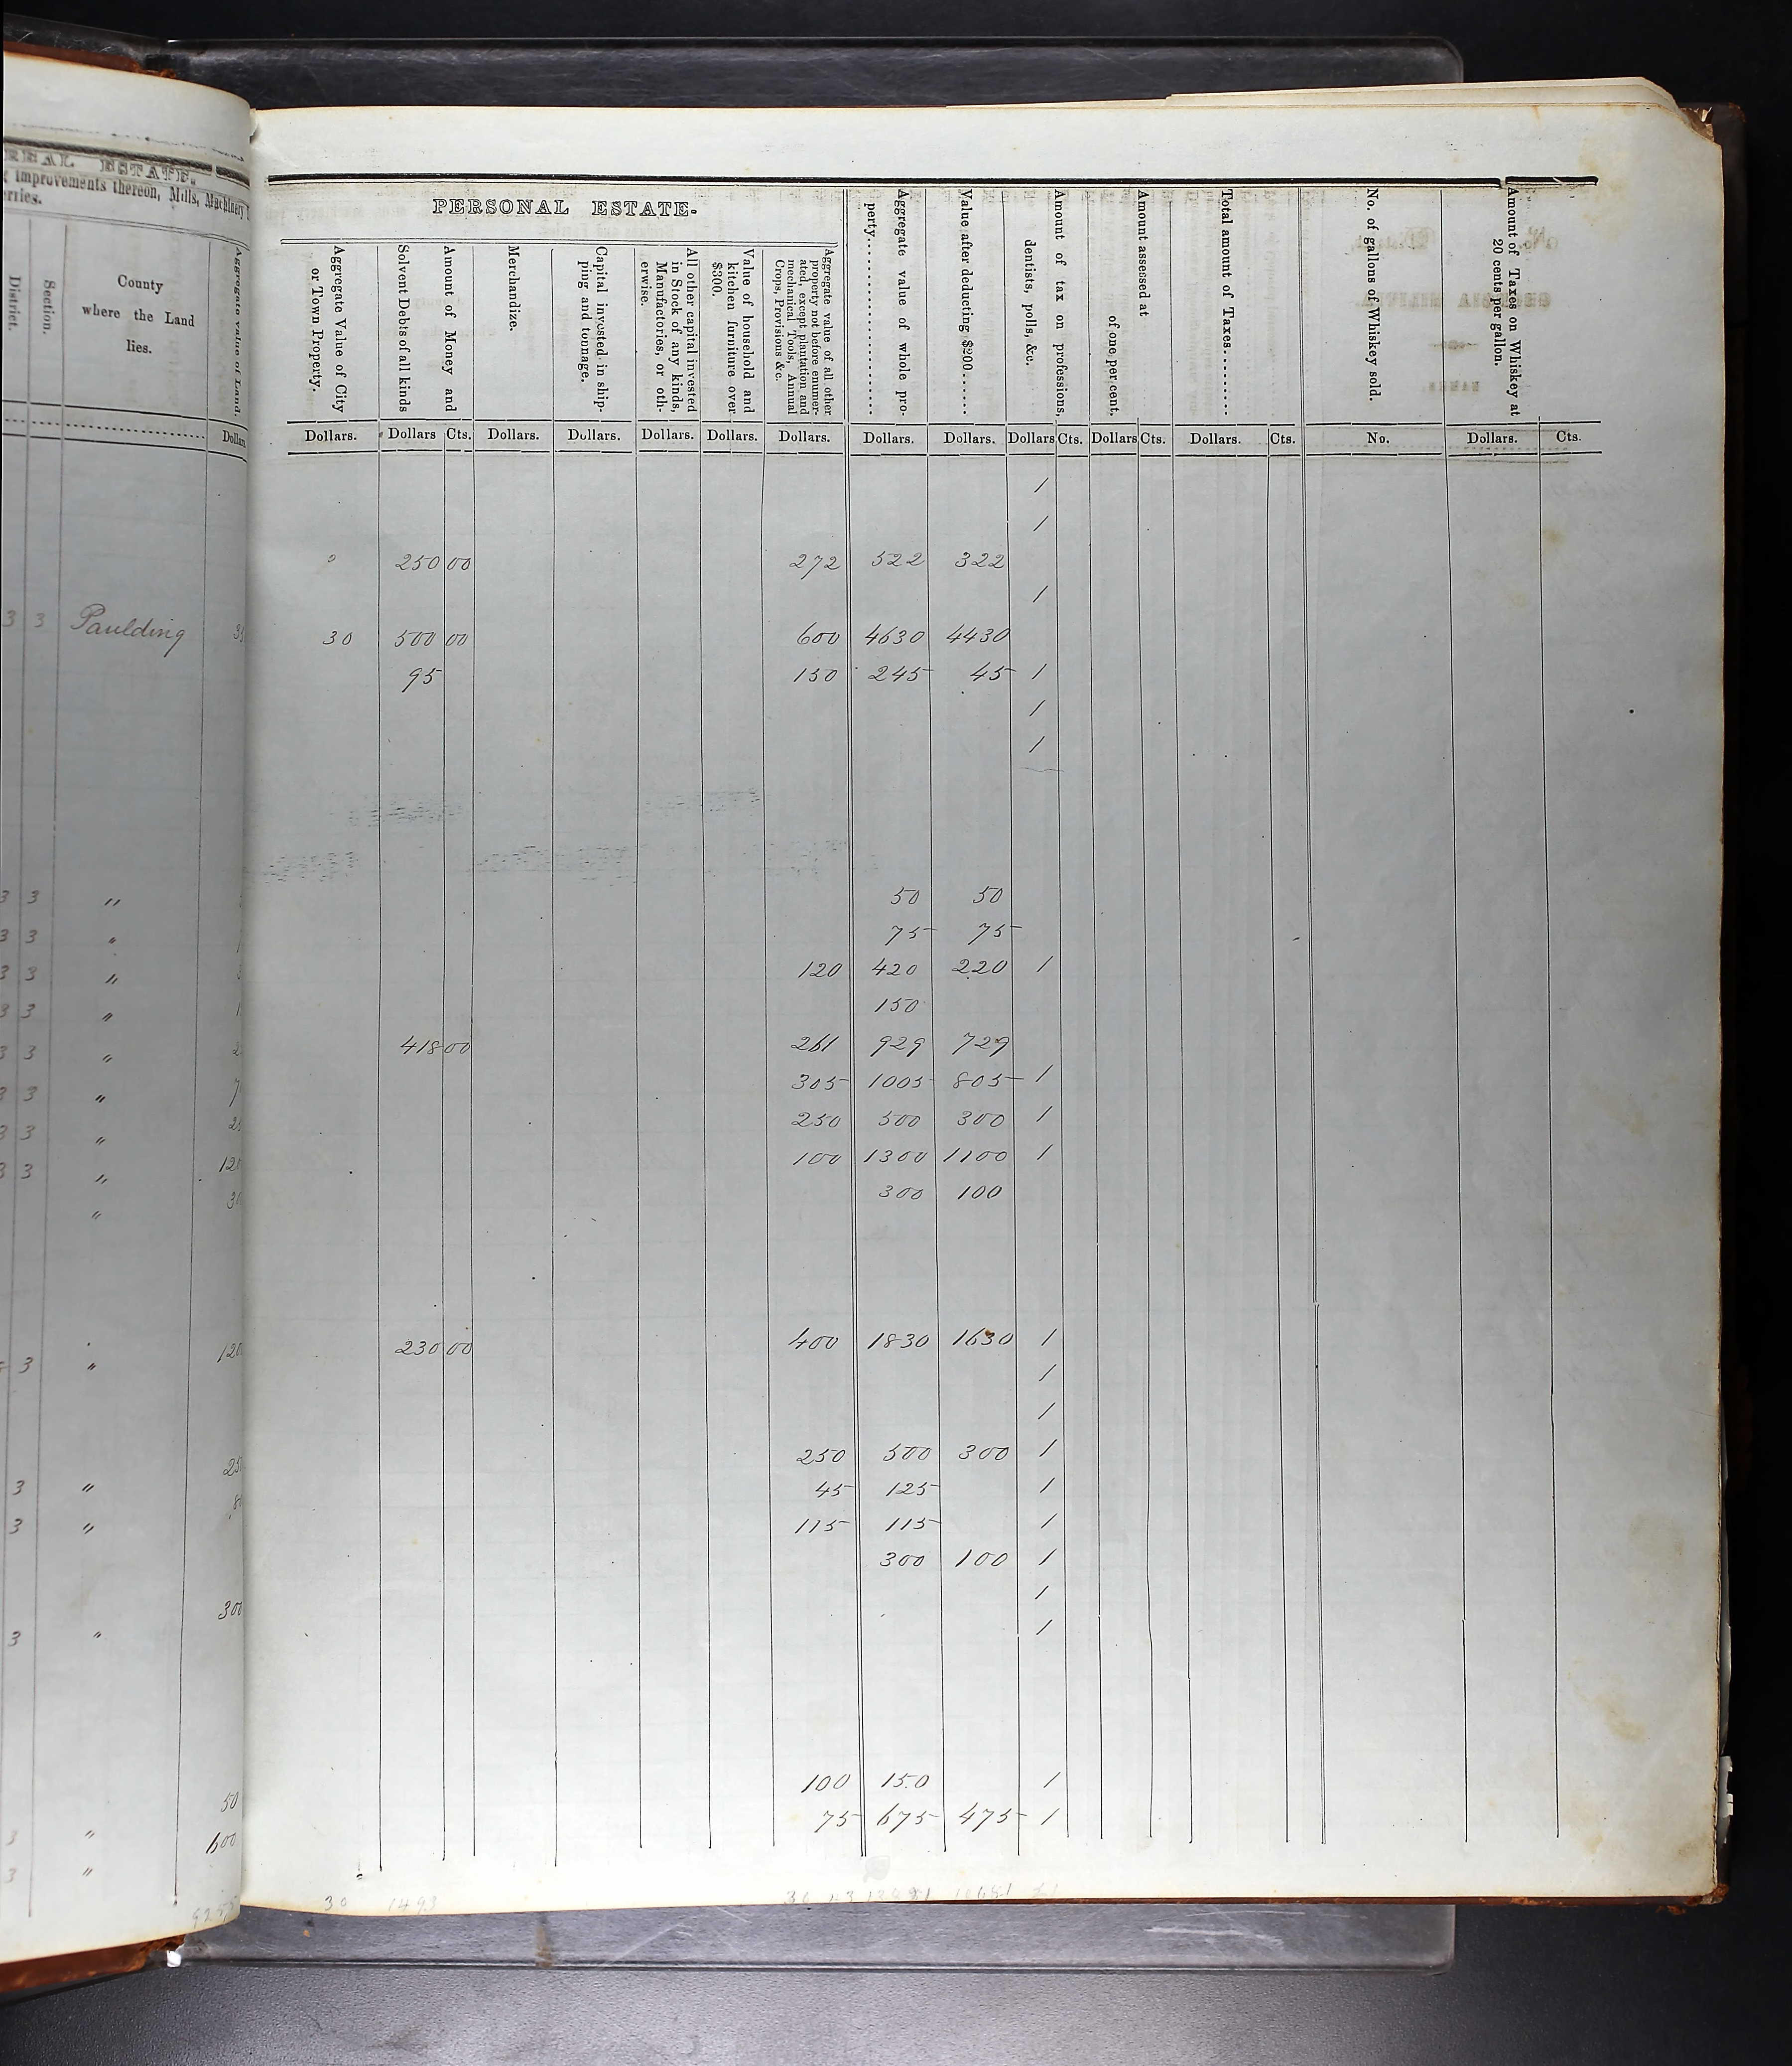 REAL ESTATE.
Improvements thereon, Mills, Machinery
erries.
District.
Section.
County
where the Land
lies.
Aggregate value of Land.
Dollars
3 3 Paulding
3 3 "
3 3 "
3 3 "
3 3 "
3 3 "
3 3 "
3 3 "
3 3 " 120
" 30
3 " 120
3 "
3 "
300
3 "
50
3 " 600
3 "
PERSONAL ESTATE.
Aggregate Value of City
or Town Property.
Amount of Money and
Solvent Debts of all kinds
Merchandize.
Capital invested in ship-
ping and tonnage.
All other capital invested
in Stock of any kinds,
Manufactories, or oth-
erwise.
Value of household and
kitchen furniture over
$300.
Aggregate value of all other
property not before enumer-
ated, except plantation and
mechanical Tools, Annual
Crops, Provisions &c.
Aggregate value of whole pro-
perty
Value after deducting $200
Amount of tax on professions,
dentists, polls, &c.
Amount assessed at
of one per cent.
Total amount of Taxes
No. of gallons of Whiskey sold.
Amount of Taxes on Whiskey at
20 cents per gallon.
Dollars. Dollars Cts. Dollars. Dollars. Dollars. Dollars. Dollars. Dollars. Dollars. Dollars Cts. Dollars Cts. Dollars. Cts. No. Dollars. Cts.
1
1
250 00 272 522 322
1
30 500 00 600 4630 4430
95 150 245 45 1
1
1
50 50
75 75
120 420 220 1
150
418 00 261 929 729
305 1005 805 1
250 500 300 1
100 1300 1100 1
300 100
230 00 400 1830 1630 1
1
1
250 500 300 1
45 125 1
115 115 1
300 100 1
1
1
100 150 1
75 675 475 1
30 1493